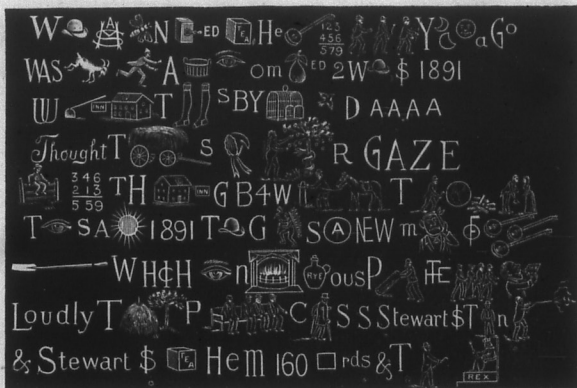 W A N ED TEA He 123 456 579 Y a Go
WAS A om ED 2W $ 1891
W INN T S BY D AAAA
Thought T S R GAZE
346 213 559 TH INN G B4W T
T SA 1891 T G S A NEW m F
WH¢H n RYE ous P THE
Loudly T P C S S Stewart $ T n
& Stewart $ TEA Hem 160 rds & T REX